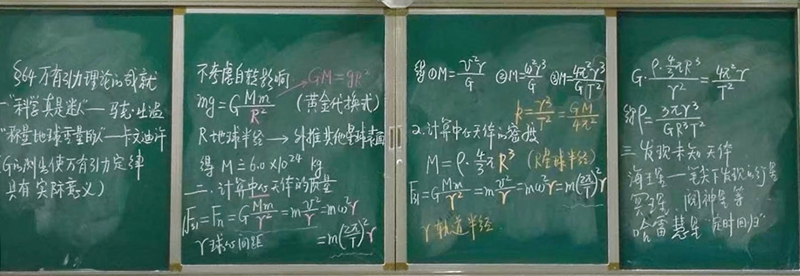 §6.4 万有引力理论的成就
一."科学真是迷人"——马克·吐温
"称量地球质量的人"——卡文迪许
(G的测出使万有引力定律
具有实际意义)
不考虑自转影响
mg=G Mm/R² → GM=gR²
(黄金代换式)
R地球半径 → 外推其他星球表面
得 M=6.0×10²⁴ kg
二.计算中心天体的质量
F引=Fn=G Mm/r²=m v²/r=mω²r
=m(2π/T)²r
r球心间距
得①M=v²r/G ②M=ω²r³/G ③M=4π²r³/GT²
k=r³/T²=GM/4π²
2.计算中心天体的密度
M=ρ·4/3πR³ (R星球半径)
F引=G Mm/r²=m v²/r=mω²r=m(2π/T)²r
r轨道半径
G·ρ·4/3πR³/r²=4π²r/T²
得ρ=3πr³/GR³T²
三.发现未知天体
海王星—笔尖下发现的行星
冥王星 阋神星等
哈雷彗星"按时回归"